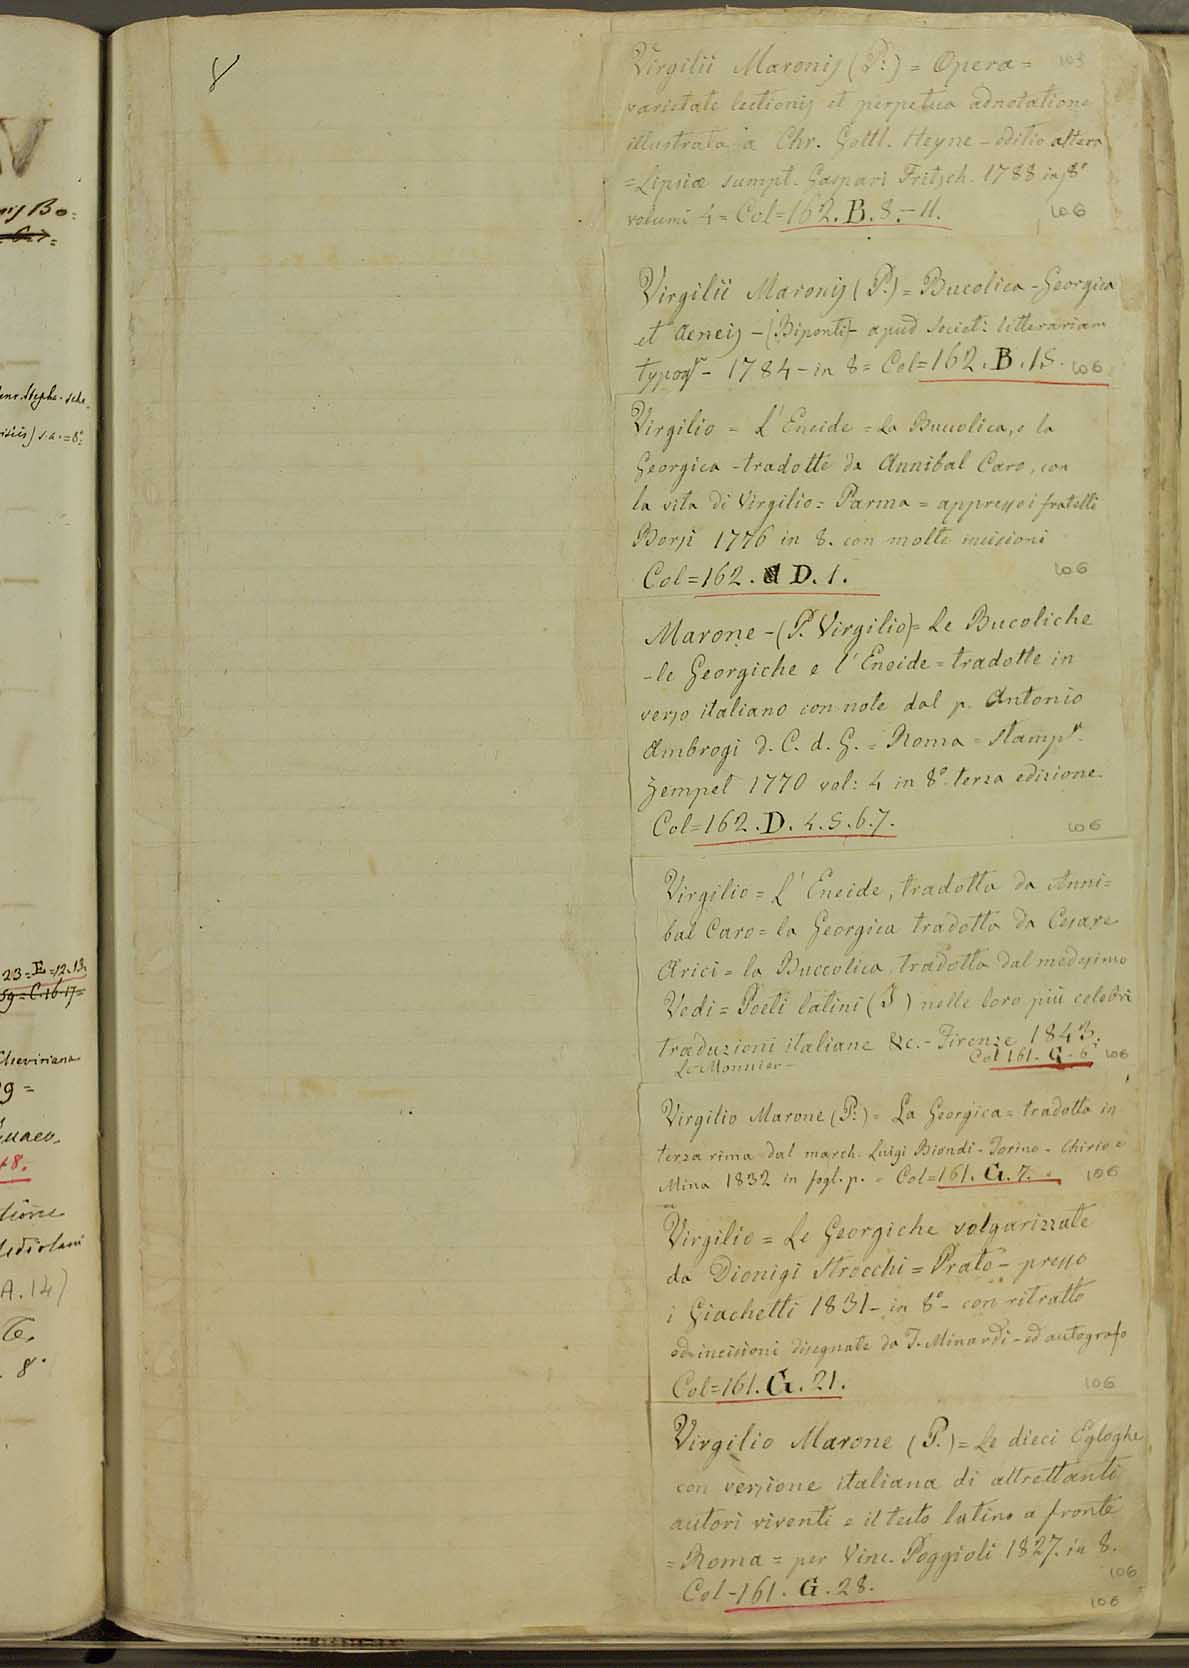 8
Virgilii Maronis (P:) = Opera = 103
varietate lectionis et perpetua adnotatione
illustrata a Chr. Gottl. Heyne - editio altera
= Lipsiæ sumpt. Gaspari Fritsch. 1788 in 8°
volumi 4 = Col = 162. B. 8. - 11. 106
Virgilii Maronis (P.) = Bucolica - Georgica
et Aeneis - (Biponti) - apud societ: litterariam
1784 - in 8 = Col = 162. B. 15. 106
Virgilio = L' Eneide = La Buccolica, e la
Georgica - tradotte da Annibal Caro, con
la vita di Virgilio = Parma = appresso i fratelli
Borsi 1776 in 8. con molte incisioni
Col = 162. D. 1. 106
Marone - (P. Virgilio) = Le Bucoliche
- le Georgiche e l' Eneide = tradotte in
verso italiano con note dal p. Antonio
Ambrogi d. C. d. G. = Roma = stampa
Zempel 1770 vol: 4 in 8° terza edizione.
Col = 162. D. 4. 5. 6. 7. 106
Virgilio = L' Eneide, tradotta da Anni=
bal Caro = la Georgica tradotta da Cesare
Arici = la Buccolica tradotta dal medesimo
Vedi = Poeti latini (I) nelle loro più celebri
traduzioni italiane &c. - Firenze 1843.
Le Monnier - Col 161. G - 6 106
Virgilio Marone (P:) = La Georgica = tradotta in
terza rima dal march. Luigi Biondi - Torino - Chirio e
Mina 1832 in fogl. p. = Col = 161. G. 7. 106
Virgilio = Le Georgiche volgarizzate
da Dionigi Strocchi = Prato - presso
i Giachetti 1831 - in 8° - con ritratto
ed incisioni disegnate da T. Minardi - ed autografo
Col = 161. G. 21. 106
Virgilio Marone (P.) = Le dieci Egloghe
con versione italiana di altrettanti
autori viventi e il testo latino a fronte
= Roma = per Vinc. Poggioli 1827. in 8.
Col - 161. G. 28. 106
106